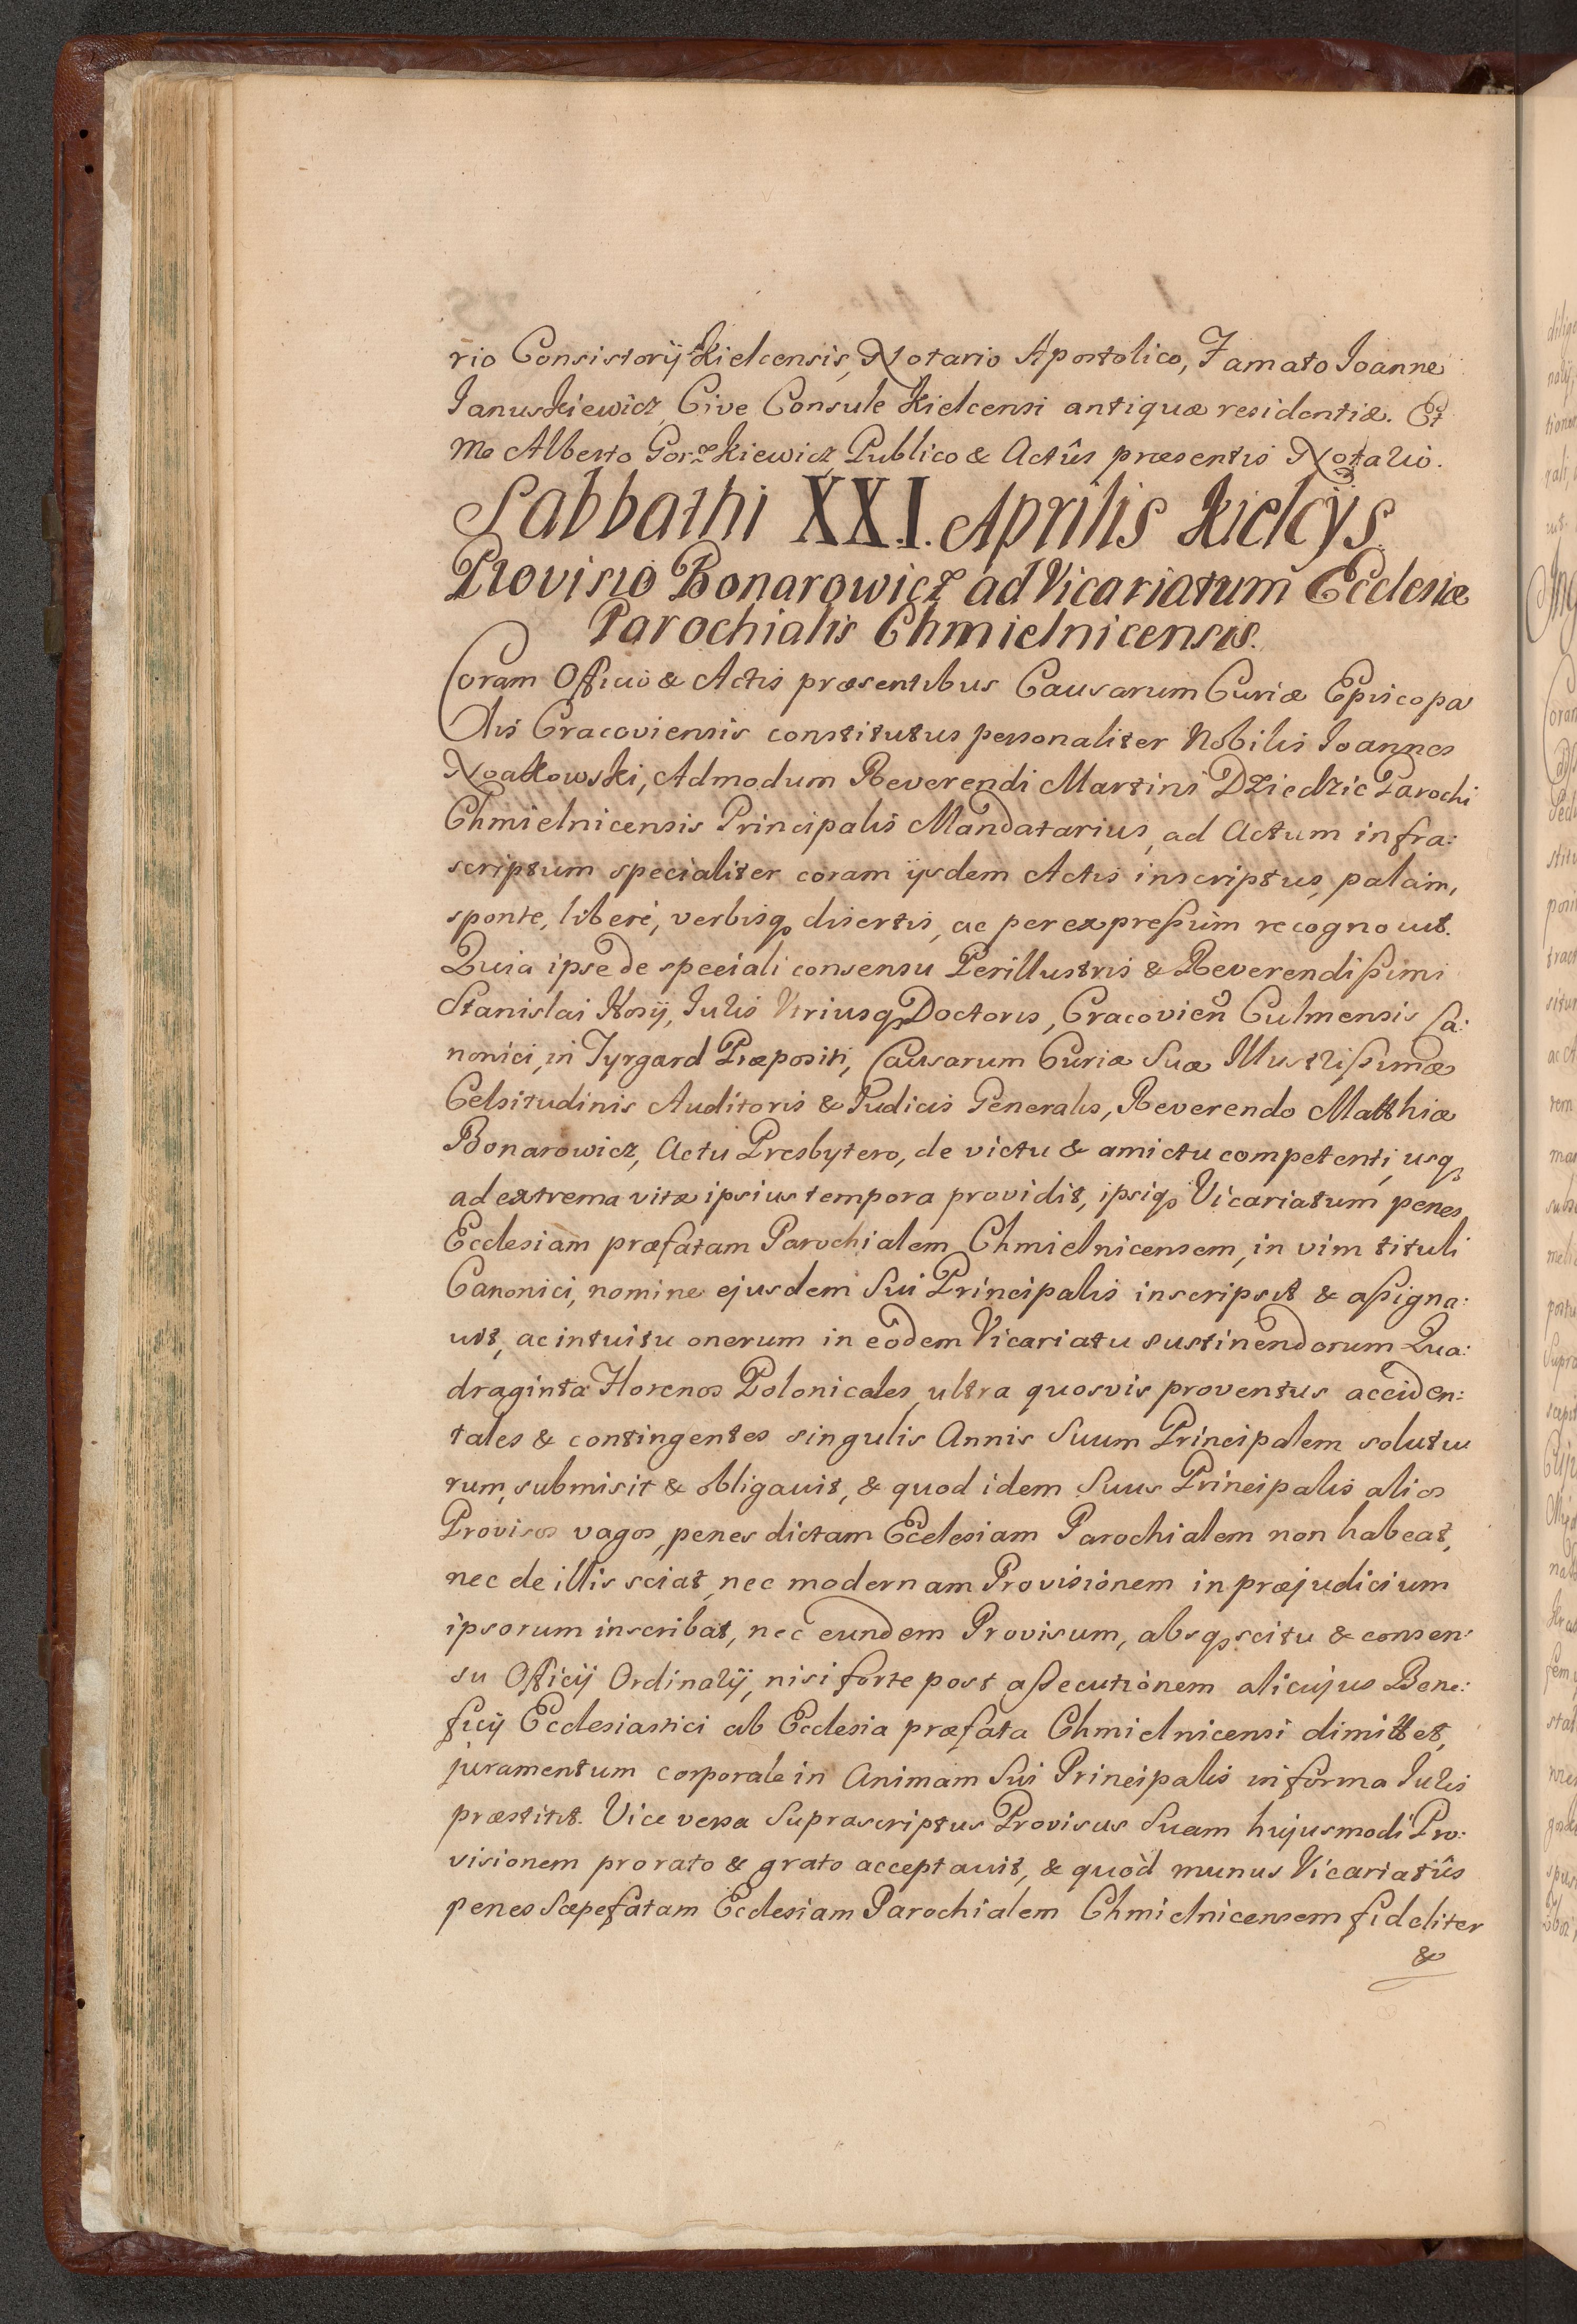 rio Consistorij Kielcensis, Notario Apostolico, Famato Ioanne
Ianuskiewicz Cive Consule Kielcensi antiquæ residentiæ. Et
me Alberto Gorzkiewicz Publico & Actûs præsentis Notario.
Sabbathi XXI. Aprilis Kielcijs.
Provisio Bonarowicz ad Vicariatum Ecclesiæ
Parochialis Chmielnicensis.
Coram Officio & Actis præsentibus Causarum Curiæ Episcopa
lis Cracoviensis constitutus personaliter Nobilis Ioannes
Noakowski, Admodum Reverendi Martini Dziedzic Parochi
Chmielnicensis Principalis Mandatarius, ad Actum infra:
scriptum specialiter coram ijsdem Actis inscriptus, palàm,
sponte, liberè, verbisq; disertis, ac per expreßùm recognouit.
Quia ipse de speciali consensu Perillustris & Reverendißimi
Stanislai Hosij, Iuris Vtriusq; Doctoris, Cracovien̄ Culmensis Ca:
nonici, in Tyrgard Præpositi, Causarum Curiæ Suæ Illustrißimæ
Celsitudinis Auditoris & Iudicis Generalis, Reverendo Matthiæ
Bonarowicz, Actu Presbytero, de victu & amictu competenti, usq;
ad extrema vitæ ipsius tempora providit, ipsiq; Vicariatum penes
Ecclesiam præfatam Parochialem Chmielnicensem, in vim tituli
Canonici, nomine ejusdem Sui Principalis inscripsit & aßigna:
uit, ac intuitu onerum in eôdem Vicariatu sustinendorum Qua:
draginta Florenos Polonicales, ultra quosvis proventus acciden:
tales & contingentes singulis Annis Suum Principalem solutu
rum, submisit & obligauit, & quod idem Suus Principalis alios
Provisos vagos, penes dictam Ecclesiam Parochialem non habeat,
nec de illis sciat, nec modernam Provisionem in præjudicium
ipsorum inscribat, nec eundem Provisum, absq; scitu & consen:
su Officij Ordinarij, nisi forte post aßecutionem alicujus Bene:
ficij Ecclesiastici ab Ecclesia præfata Chmielnicensi dimittet,
juramentum corporale in Animam Sui Principalis in forma Iuris
præstitit. Vice versa Suprascriptus Provisus Suam hujusmodi Pro:
visionem pro rato & grato acceptauit, & quòd munus Vicariatûs
penes Sæpefatam Ecclesiam Parochialem Chmielnicensem fideliter
&